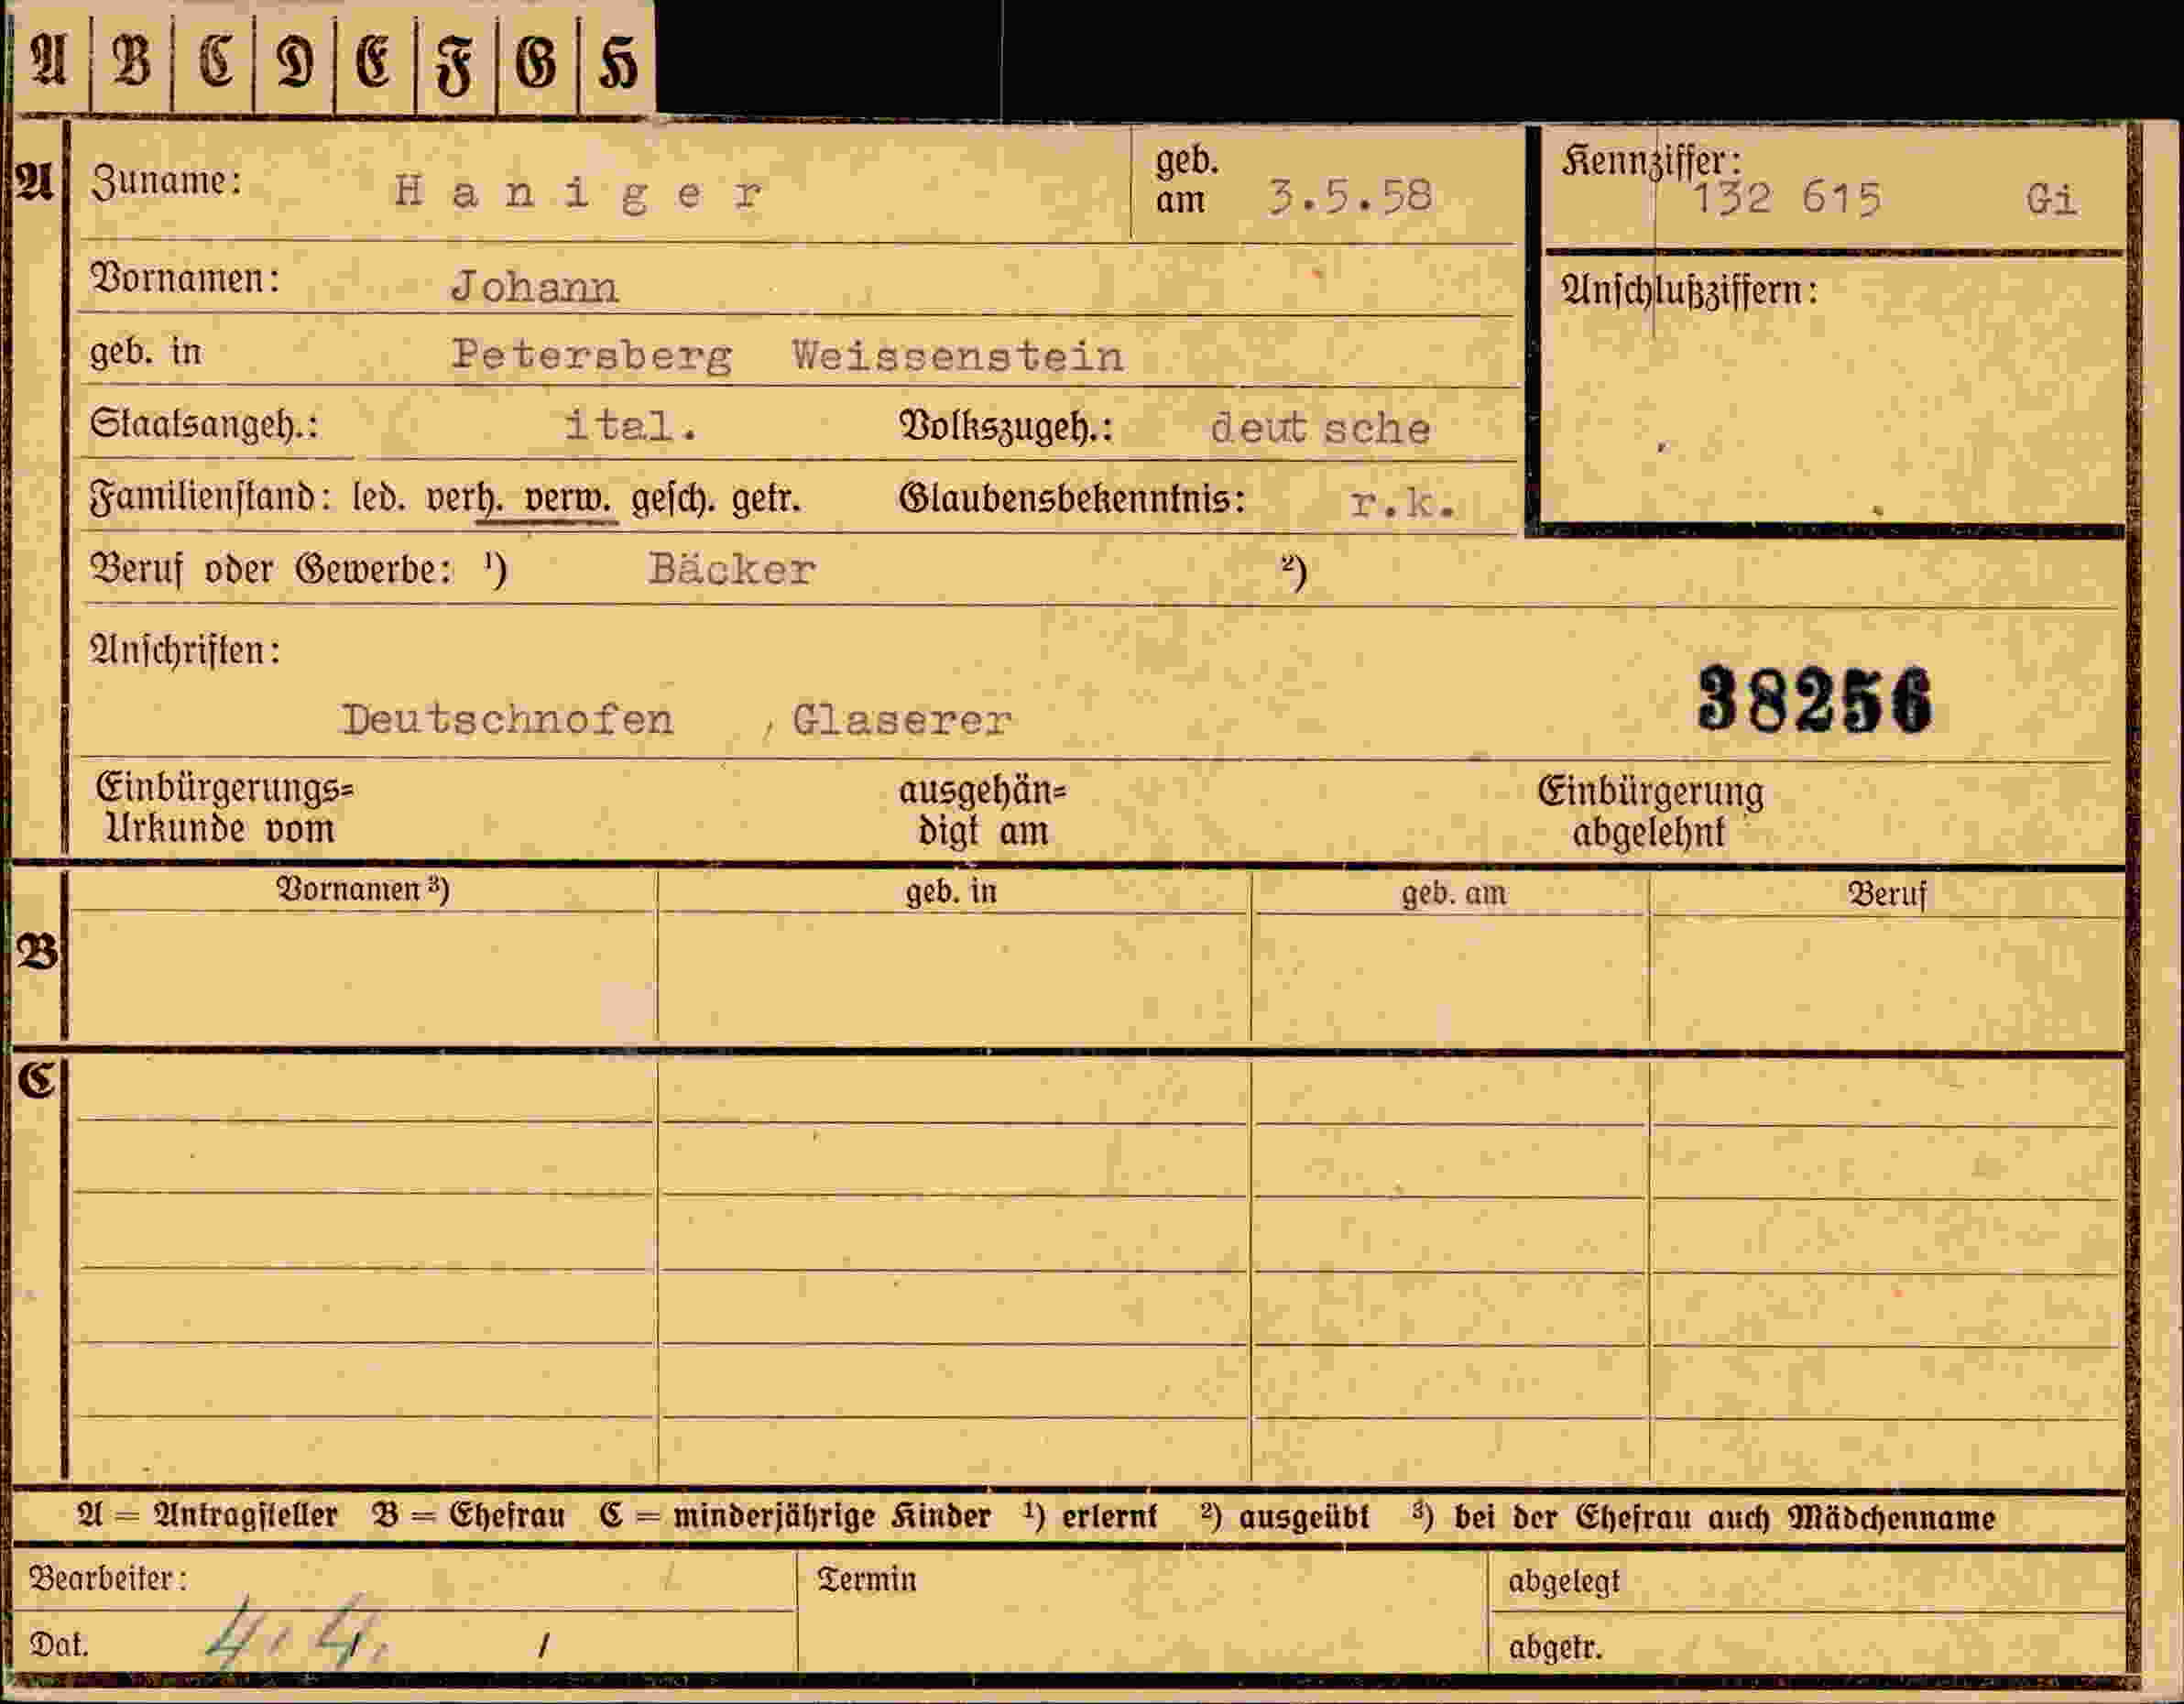 A B C D E F G H
A Zuname: Haniger geb. am 3.5.58 Kennziffer: 132 615 Gi
Vornamen: Johann Anschlußziffern:
geb. in Petersberg Weissenstein
Staatsangeh.: ital. Volkszugeh.: deut sche
Familienstand: led. verh. verw. gesch. getr. Glaubensbekenntnis: r.k.
Beruf oder Gewerbe: ¹) Bäcker ²)
Anschriften:
38256
Deutschnofen , Glaserer
Einbürgerungs= ausgehän= Einbürgerung
Urkunde vom digt am abgelehnt
Vornamen ³) geb. in geb. am Beruf
B
C
A = Antragsteller B = Ehefrau C = minderjährige Kinder ¹) erlernt ²) ausgeübt ³) bei der Ehefrau auch Mädchenname
Bearbeiter: Termin abgelegt
Dat. 4.4. abgetr.